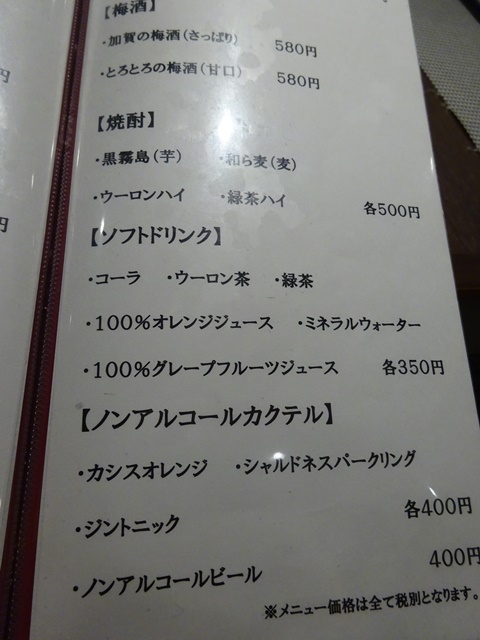 【梅酒】
・加賀の梅酒(さっぱり) 580円
・とろとろの梅酒(甘口) 580円
【焼酎】
・黒霧島(芋) ・和ら麦(麦)
・ウーロンハイ ・緑茶ハイ
各500円
【ソフトドリンク】
・コーラ ・ウーロン茶 ・緑茶
・100%オレンジジュース ・ミネラルウォーター
・100%グレープフルーツジュース 各350円
【ノンアルコールカクテル】
・カシスオレンジ ・シャルドネスパークリング
・ジントニック 各400円
・ノンアルコールビール 400円
※メニュー価格は全て税別となります。
円
円